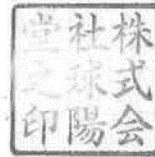 株式会
社球陽
堂之印